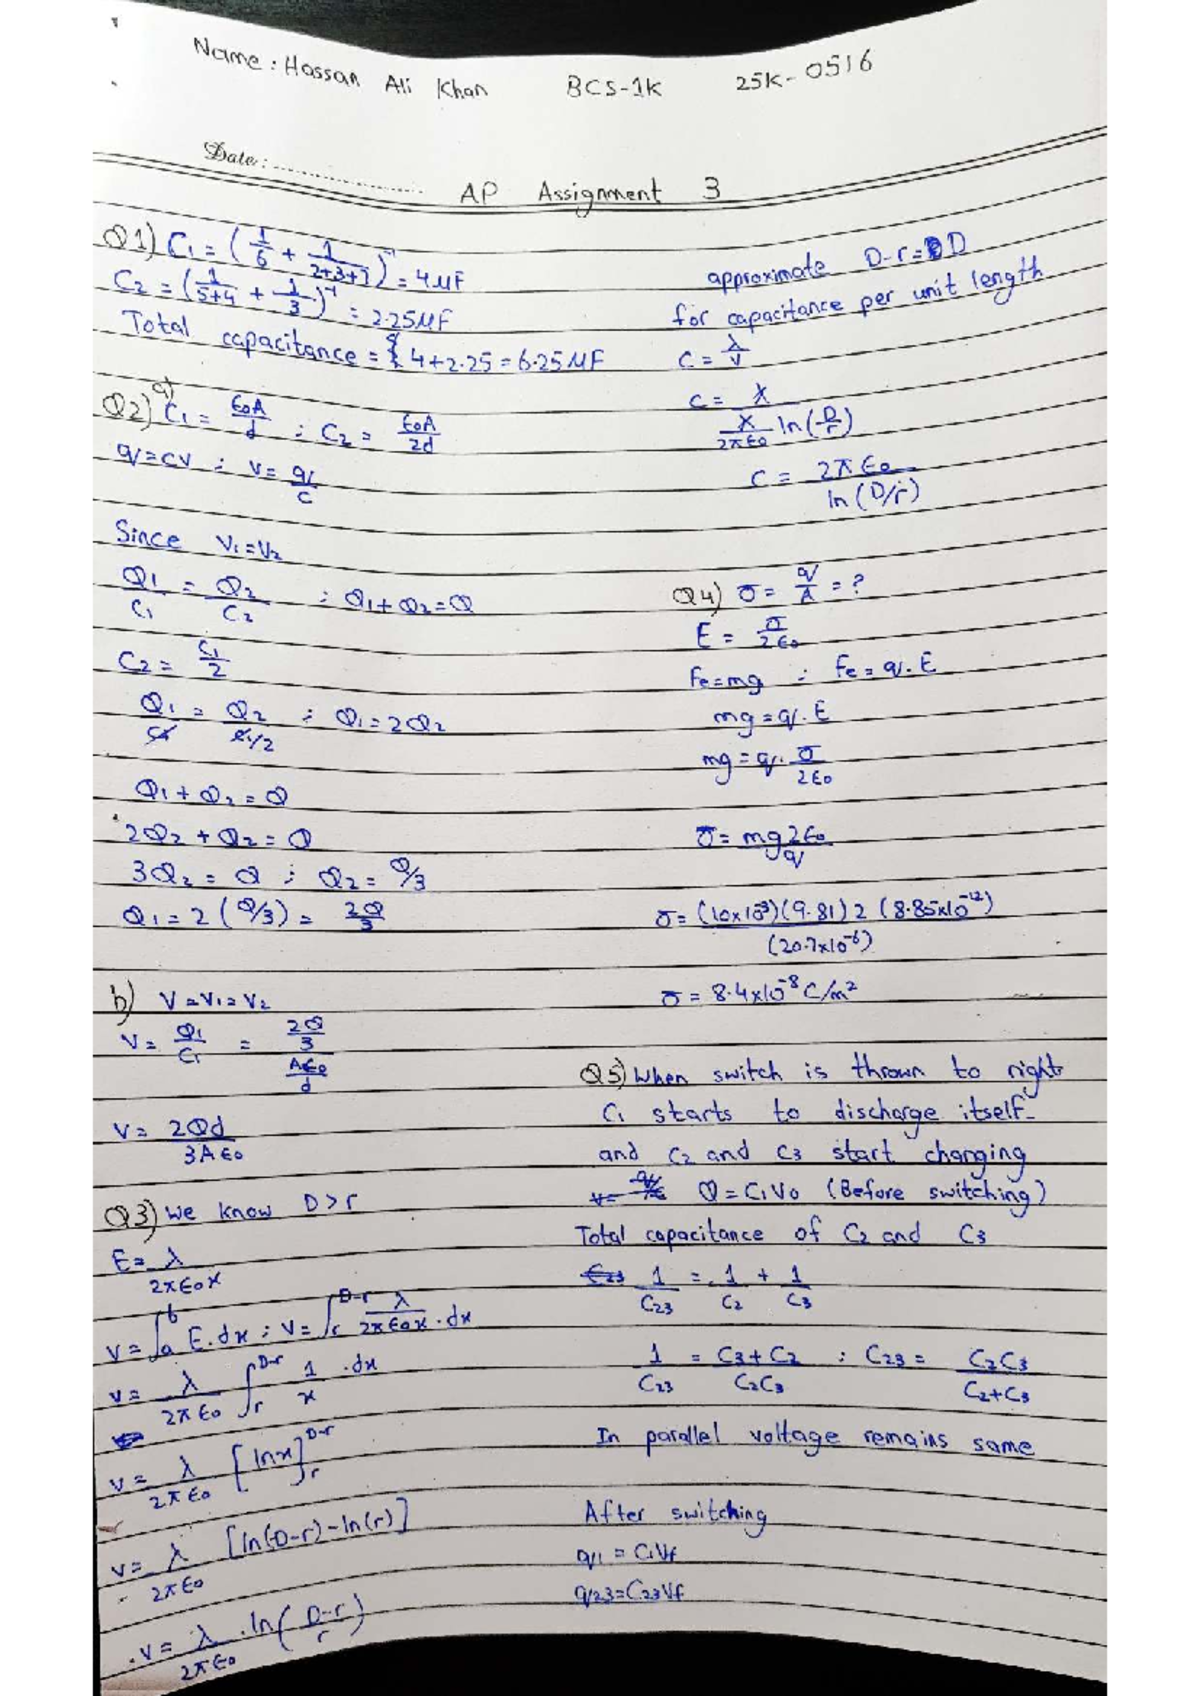 Name: Hassan Ali Khan BCS-1K 25K-0516
Date: ..............................
AP Assignment 3
Q1) C₁ = (1/6 + 1/(2+3+7))⁻¹ = 4μF
C₂ = (1/(5+4) + 1/3)⁻¹ = 2.25μF
Total capacitance = 4+2.25 = 6.25μF
Q2) a) C₁ = ε₀A/d ; C₂ = ε₀A/2d
q = CV ; V = q/C
Since V₁=V₂
Q₁/C₁ = Q₂/C₂ ; Q₁+Q₂=Q
C₂ = C₁/2
Q₁/C₁ = Q₂/(C₁/2) ; Q₁=2Q₂
Q₁+Q₂=Q
2Q₂+Q₂=Q
3Q₂ = Q ; Q₂ = Q/3
Q₁ = 2(Q/3) = 2Q/3
b) V=V₁=V₂
V = Q₁/C₁ = (2Q/3)/(Aε₀/d)
V = 2Qd/3Aε₀
Q3) We know D>r
E = λ/2πε₀x
V = ∫ₐᵇ E.dx ; V = ∫ᵣᴰ⁻ʳ λ/2πε₀x .dx
V = λ/2πε₀ ∫ᵣᴰ⁻ʳ 1/x .dx
V = λ/2πε₀ [lnx]ᵣᴰ⁻ʳ
V = λ/2πε₀ [ln(D-r)-ln(r)]
V = λ/2πε₀ .ln((D-r)/r)
approximate D-r = D
for capacitance per unit length
C = λ/V
C = λ/(λ/2πε₀ ln(D/r))
C = 2πε₀/ln(D/r)
Q4) σ = q/A = ?
E = σ/2ε₀
Fe=mg ; Fe = q.E
mg = q.E
mg = q.σ/2ε₀
σ = mg2ε₀/q
σ = (10x10⁻³)(9.81)2(8.85x10⁻¹²)/(20.7x10⁻⁶)
σ = 8.4x10⁻⁸ C/m²
Q5) When switch is thrown to right
C₁ starts to discharge itself.
and C₂ and C₃ start charging
Q = C₁V₀ (Before switching)
Total capacitance of C₂ and C₃
1/C₂₃ = 1/C₂ + 1/C₃
1/C₂₃ = (C₃+C₂)/C₂C₃ ; C₂₃ = C₂C₃/(C₂+C₃)
In parallel voltage remains same
After switching
q₁ = C₁Vf
q₂₃=C₂₃Vf